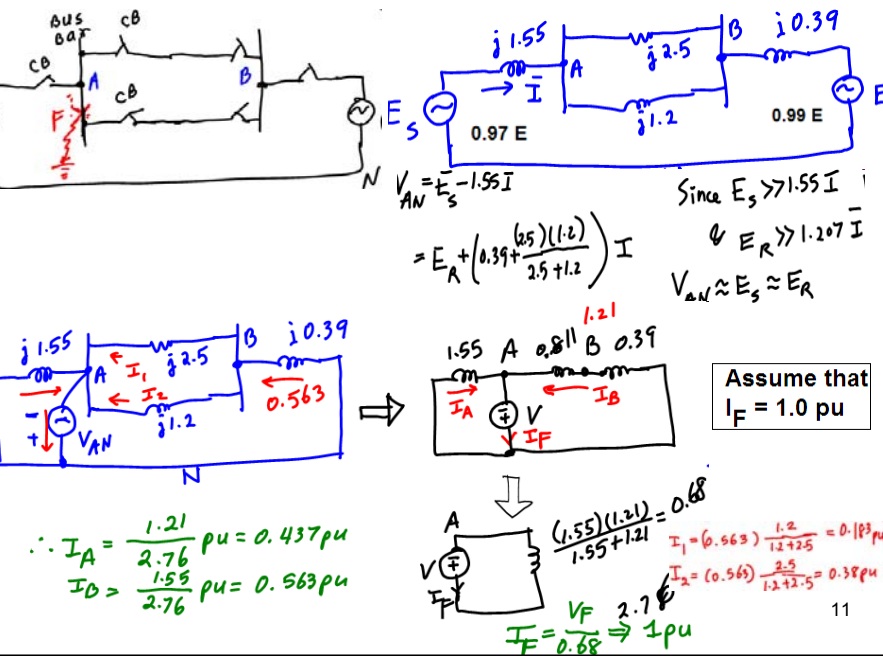 BUS
Bar
CB
CB
A
B
CB
F
N
j 1.55
A
B
j 0.39
j 2.5
Ī
j1.2
E
S
0.97 E
0.99 E
E
V_AN = Ē_S - 1.55 Ī
= E_R + (0.39 + (2.5)(1.2) / 2.5 + 1.2) I
Since E_S >> 1.55 I
& E_R >> 1.207 Ī
V_AN ≈ E_S ≈ E_R
j 1.55
A
B
j 0.39
I_1
j 2.5
I_2
j1.2
0.563
-
+
V_AN
N
1.21
1.55 A 0.811 B 0.39
I_A
I_B
V
I_F
Assume that
I_F = 1.0 pu
∴ I_A = 1.21 / 2.76 pu = 0.437 pu
I_B = 1.55 / 2.76 pu = 0.563 pu
A
V
I_F
(1.55)(1.21) / 1.55 + 1.21 = 0.68
I_F = V_F / 0.68 ⇒ 1 pu
I_1 = (0.563) 1.2 / 1.2 + 2.5 = 0.183 pu
I_2 = (0.563) 2.5 / 1.2 + 2.5 = 0.38 pu
11